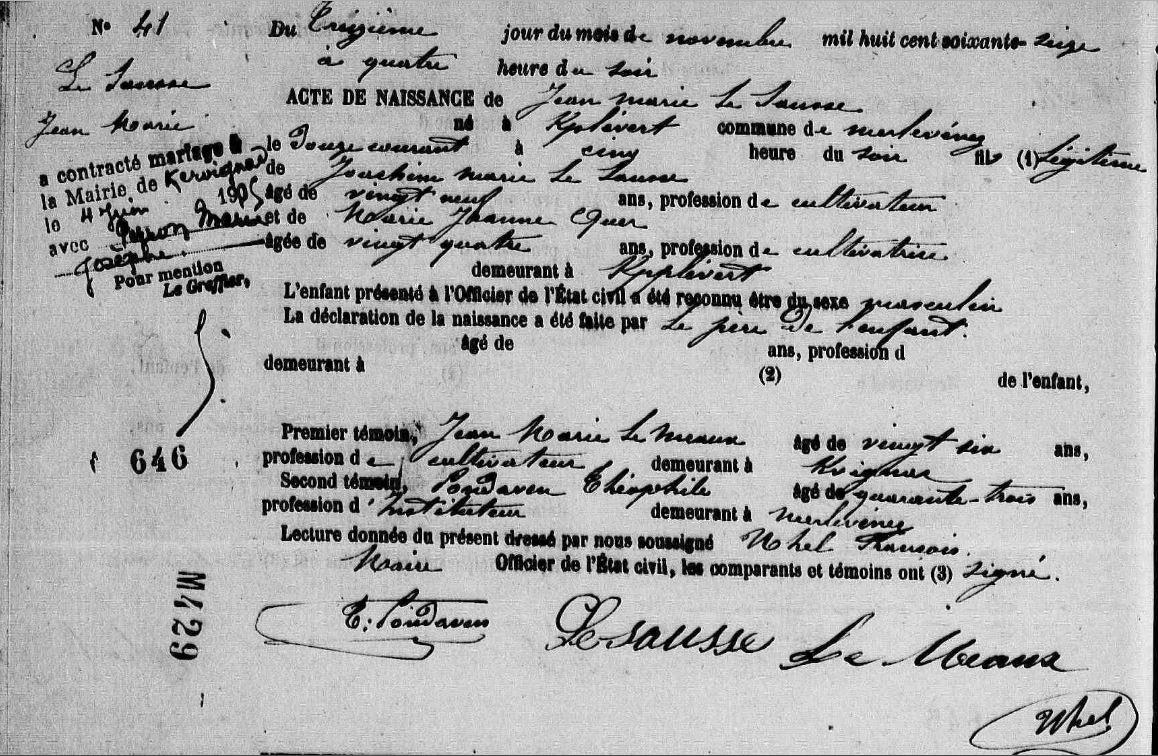 N° 41 Du treizième jour du mois de novembre mil huit cent soixante-seize
à quatre heure du soir
Le Sausse
Jean Marie
ACTE DE NAISSANCE de Jean marie Le Sausse
né à Kplévert commune de merlevénez
le Douze courant à cinq heure du soir fils (1) Légitime
de Joachim marie Le Sausse
âgé de vingt neuf ans, profession de cultivateur
et de Marie Jeanne Quer
âgée de vingt quatre ans, profession de cultivatrice
demeurant à Kplévert
a contracté mariage à
la Mairie de Kervignac
le 4 Juin 1905
avec Marie
Josèphe.
Pour mention
Le Greffier,
L'enfant présenté à l'Officier de l'État civil a été reconnu être du sexe masculin
La déclaration de la naissance a été faite par Le père de l'enfant.
âgé de ans, profession d
demeurant à (2) de l'enfant,
Premier témoin, Jean Marie Le Meaux âgé de vingt six ans,
profession de cultivateur demeurant à
Second témoin, Pondaven Théophile âgé de quarante-trois ans,
profession d'Instituteur demeurant à merlévénez
Lecture donnée du présent dressé par nous soussigné Uhel François.
Maire Officier de l'État civil, les comparants et témoins ont (3) signé.
646
M429
E. Pondaven Le sausse Le Meaux
Uhel